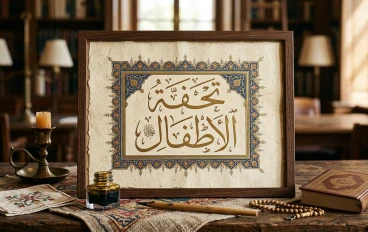 تُحْفَةُ
الأَطْفَال